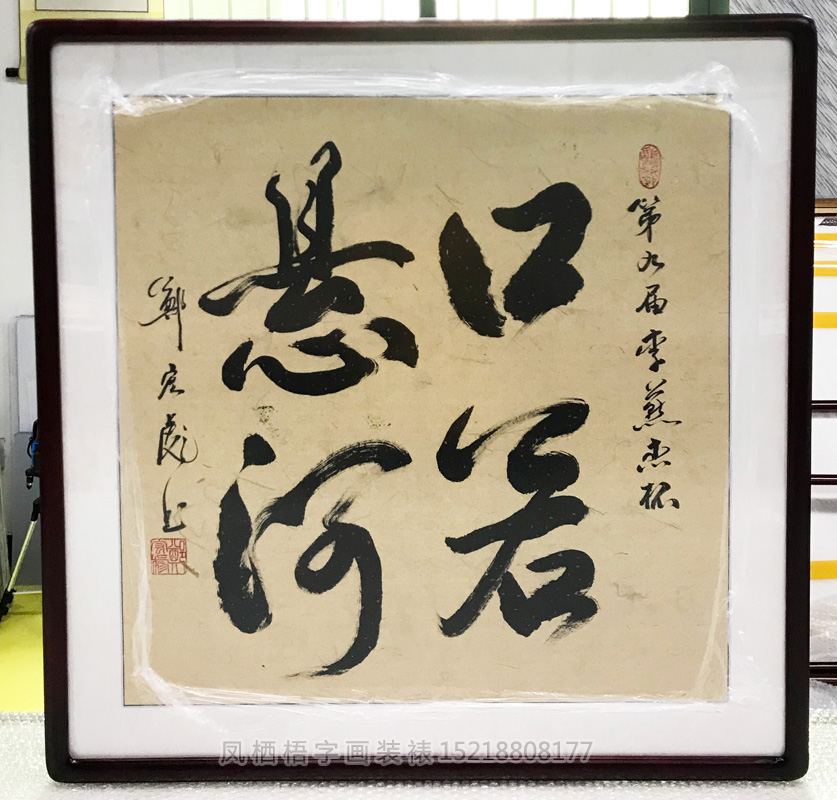 第九届李燕杰杯
口若
悬河
郑宏彪书
凤栖梧字画装裱15218808177